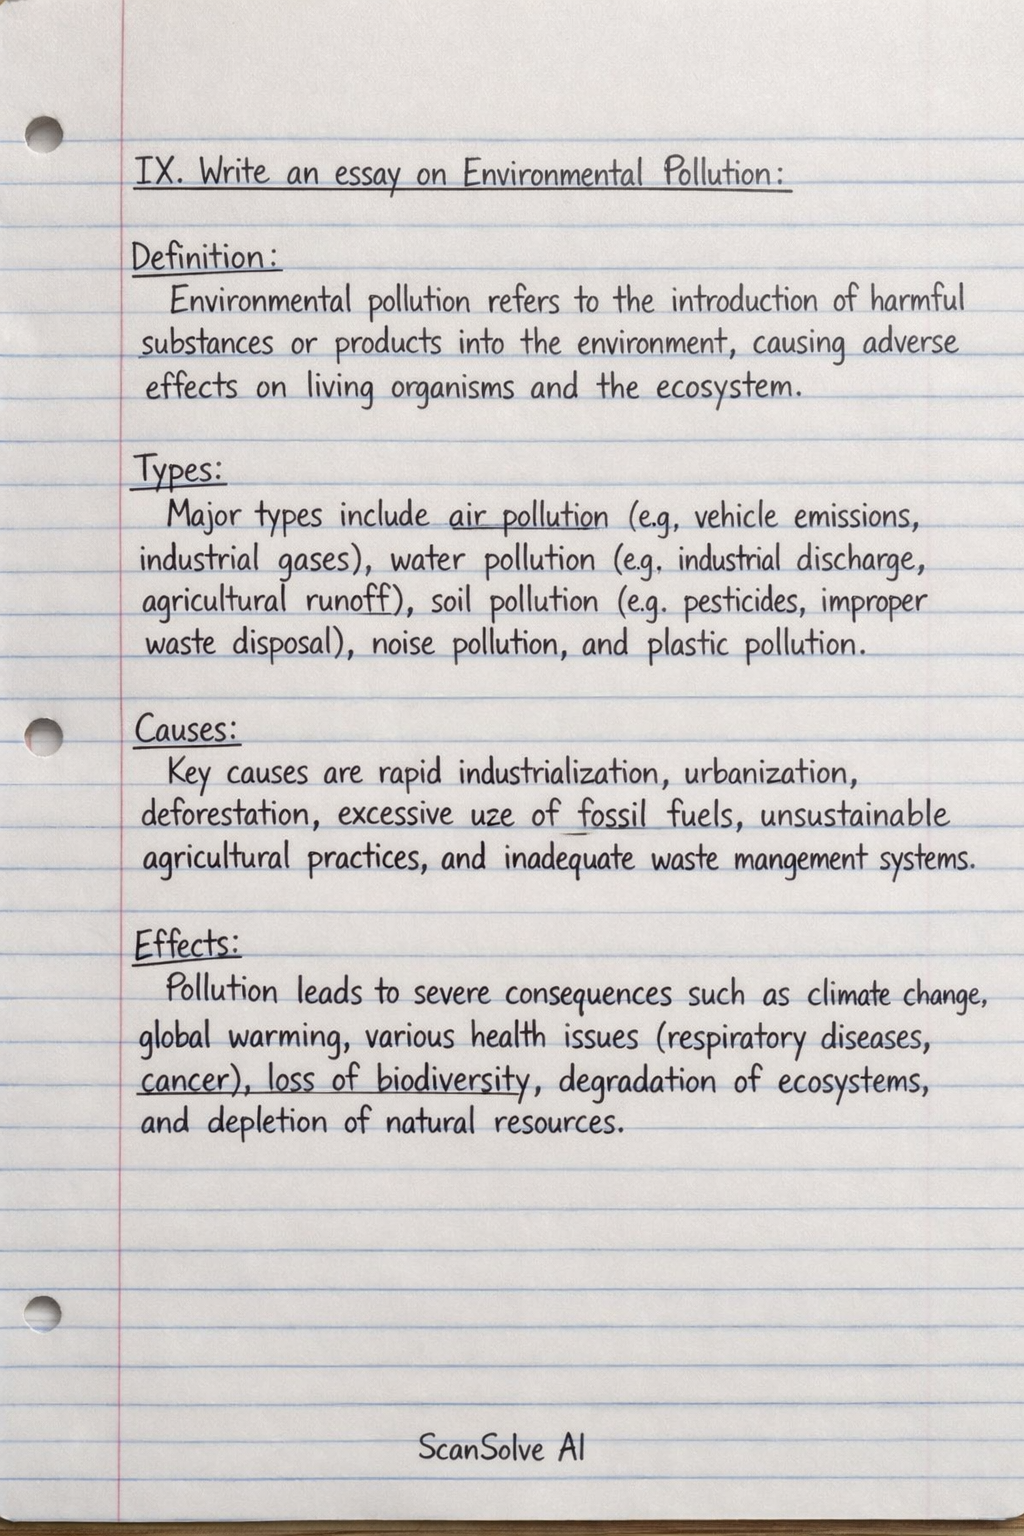 IX. Write an essay on Environmental Pollution:
Definition:
Environmental pollution refers to the introduction of harmful
substances or products into the environment, causing adverse
effects on living organisms and the ecosystem.
Types:
Major types include air pollution (e.g, vehicle emissions,
industrial gases), water pollution (e.g. industrial discharge,
agricultural runoff), soil pollution (e.g. pesticides, improper
waste disposal), noise pollution, and plastic pollution.
Causes:
Key causes are rapid industrialization, urbanization,
deforestation, excessive uze of fossil fuels, unsustainable
agricultural practices, and inadequate waste mangement systems.
Effects:
Pollution leads to severe consequences such as climate change,
global warming, various health issues (respiratory diseases,
cancer), loss of biodiversity, degradation of ecosystems,
and depletion of natural resources.
ScanSolve AI